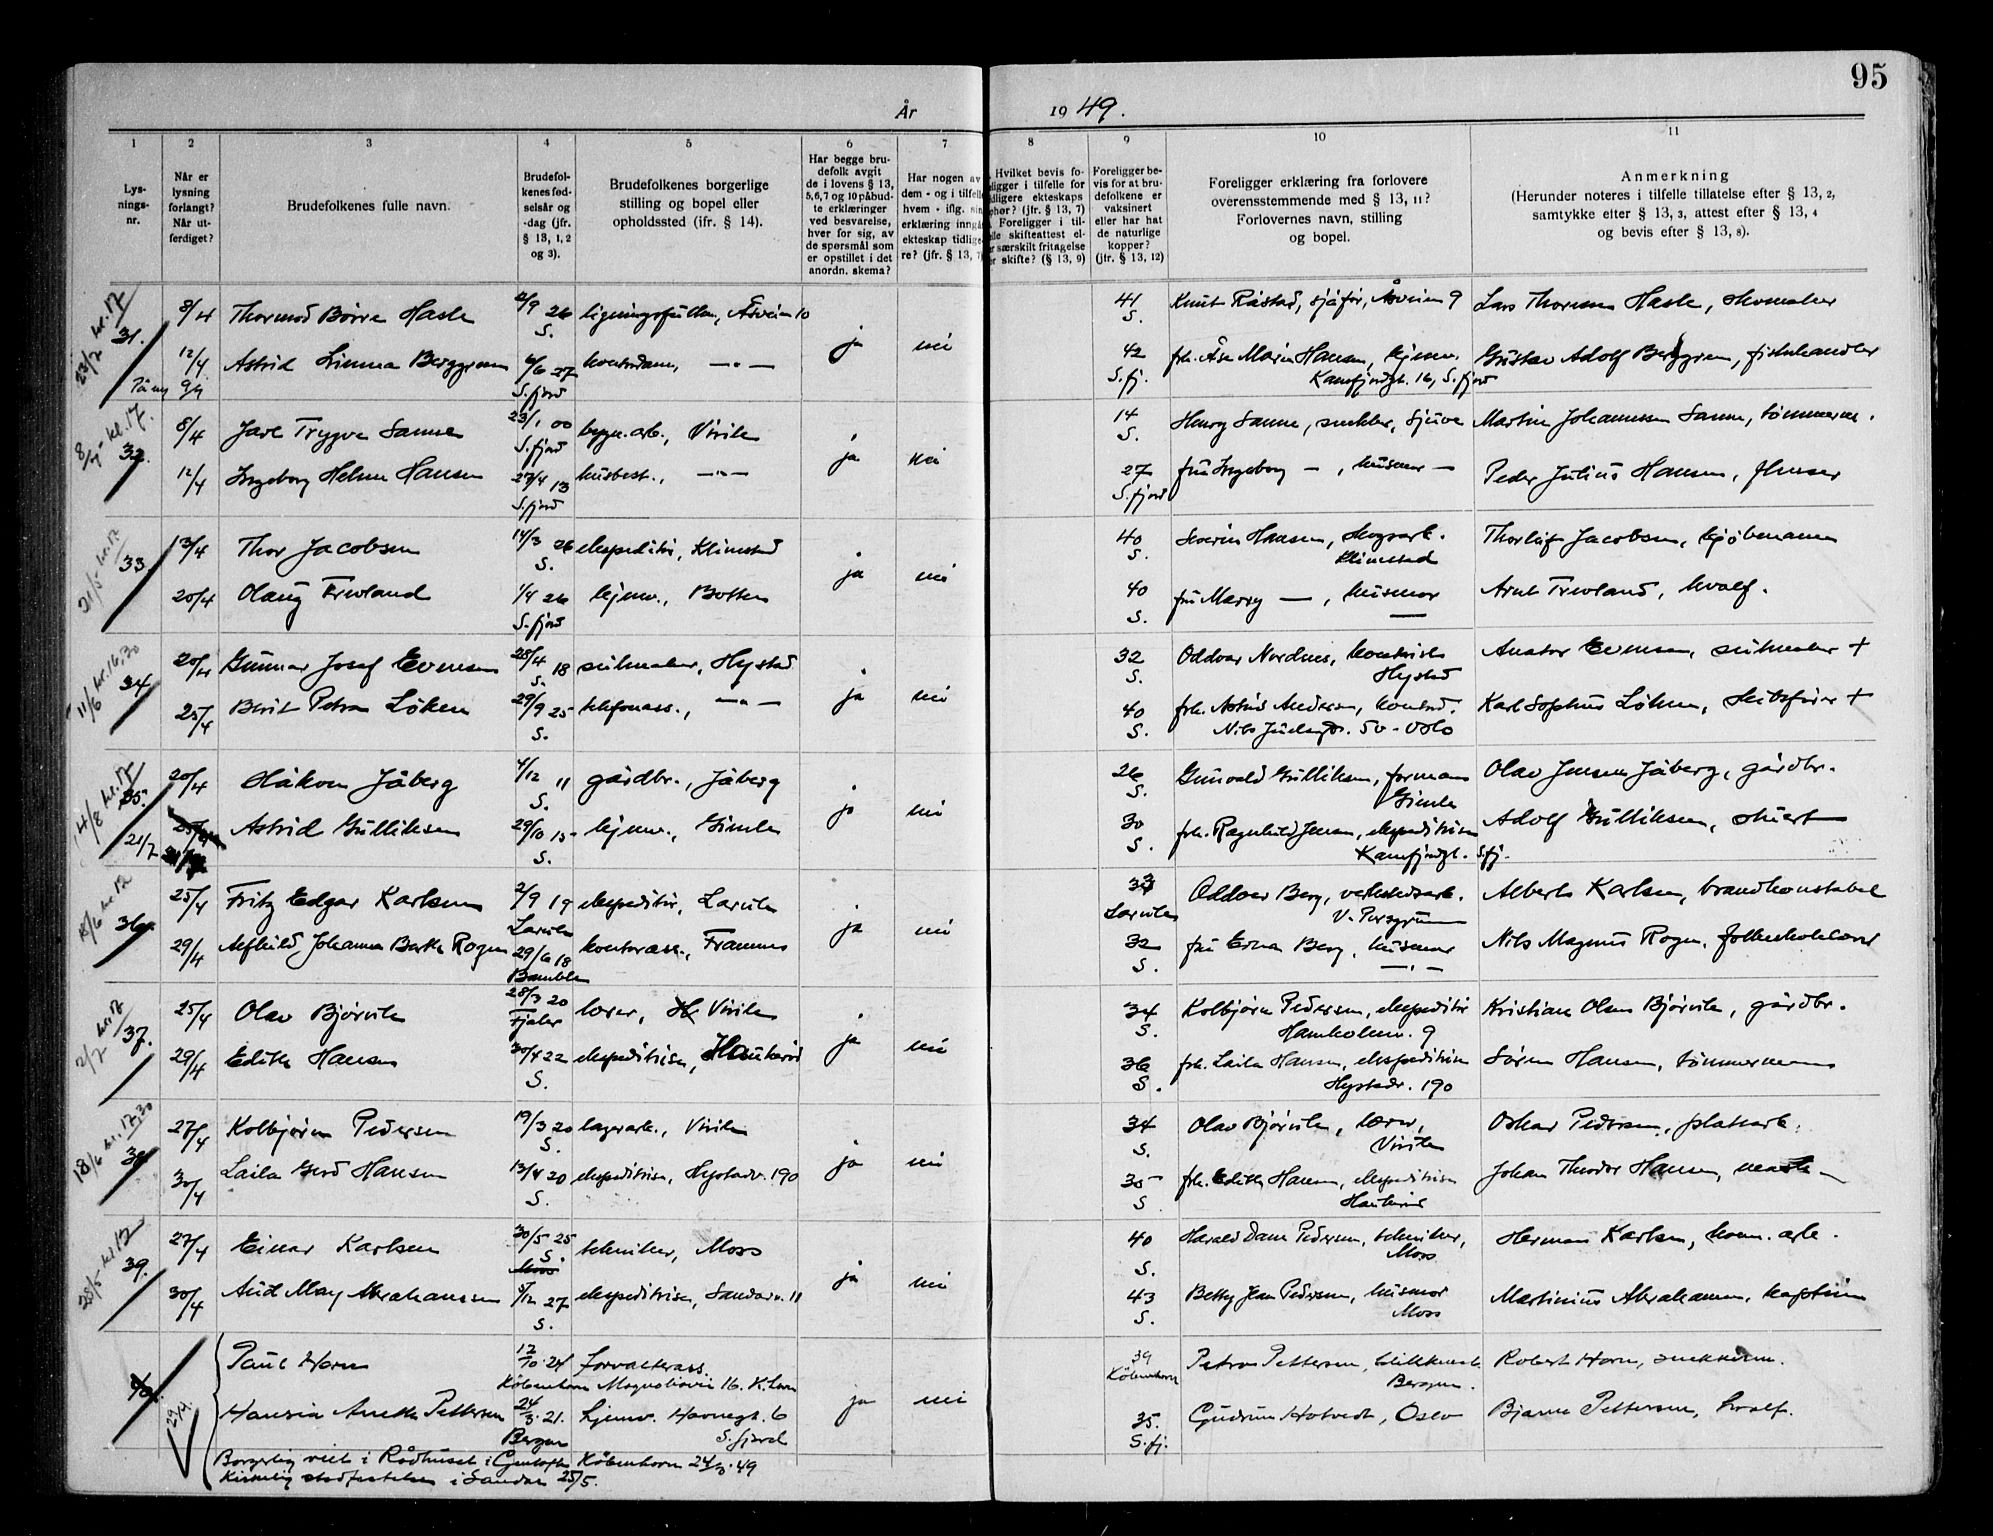 95
År 1949.
1 2 3 4 5 6 7 8 9 10 11
Lys-
nings-
nr.
Når er
lysning
forlangt?
Når ut-
ferdiget?
Brudefolkenes fulle navn.
Brudefol-
kenes fød-
selsår og
-dag (jfr.
§ 13, 1, 2
og 3).
Brudefolkenes borgerlige
stilling og bopel eller
opholdssted (ifr. § 14).
Har begge bru-
defolk avgit
de i lovens § 13,
5,6,7 og 10 påbud-
te erklæringer
ved besvarelse,
hver for sig, av
de spørsmål som
er opstillet i det
anordn. skema?
Har nogen av
dem - og i tilfelle
hvem - iflg. sin
erklæring inngå
ekteskap tidlige-
re? (jfr. § 13, 7)
Hvilket bevis fo-
religger i tilfelle for
tidligere ekteskaps
ophør? (jfr. § 13, 7)
Foreligger i til-
felle skifteattest el-
er særskilt fritagelse
er skifte? (§ 13, 9)
Foreligger be-
vis for at bru-
defolkene er
vaksinert
eller har hat
de naturlige
kopper?
(jfr. § 13, 12)
Foreligger erklæring fra forlovere
overensstemmende med § 13, 11?
Forlovernes navn, stilling
og bopel.
Anmerkning
(Herunder noteres i tilfelle tillatelse efter § 13, 2,
samtykke efter § 13, 3, attest efter § 13, 4
og bevis efter § 13, 8).
23/7 kl. 17
31. 8/4 Thormod Børre Hasle 2/9 26 S. Åsveien 10 ja nei 41 S. Knut Råstad, sjåfør, Åsveien 9 Lars Thorsen Hasle, skomaker
12/4 Astrid Berggreen 6/6 27 S. fjord kontordame, —"— 42 S. fj. frk. Åse Marie Hansen, hjemv. Gustav Adolf Berggren, fiskehandler
Kamfjordgt. 16, S. fjord
8/7 - kl. 17.
32. 8/4 Jarl Trygve Sanne 23/1 00 S. fjord bygn. arb., Virik ja nei 14 S. Henry Sanne, snekker, Sjuve Martin Johannessen Sanne, tømmerm.
12/4 Ingeborg Helene Hansen 27/4 13 S. fjord husbest., —"— 27 S. fjord fru Ingeborg —, husmor — Peder Julius Hansen,
21/5 kl. 17
33 13/4 Thor Jacobsen 14/3 26 S. ekspeditør, Klinestad ja nei 40 S. Severin Hansen, skogsarb. Klinestad Thorleif Jacobsen, kjøbmann
20/4 Olaug Trevland 1/4 26 S. fjord hjemv., Botten 40 S. fru Marry —, husmor — Arnt Trevland, hvalf.
11/6 kl. 16,30
34. 20/4 Gunnar Josef Evensen 28/4 18 S. seilmaker, Hystad ja nei 32 S. Oddvar Nordnes, kontorist Hystad Anator Evensen, seilmaker +
25/4 Berit Petra Løken 29/9 25 S. telefonass., —"— 40 S. frk. Astrid Andersen, Nils Juelsgt. 50 - Oslo Karl Sophus Løken, skibsfører +
4/8 kl. 17
35. 20/4 Håkon Jåberg 4/12 11 S. gårdbr., Jåberg ja nei 26 S. Gunvald Gulliksen, formann Gimle Olav Jensen Jåberg, gårdbr.
21/7 Astrid Gulliksen 29/10 15 S. hjemv., Gimle 30 S. frk. Ragnhild Jensen, ekspeditrise Kamfjordgt. S.fj. Adolf Gulliksen, stuert
18/6 kl 12
36. 25/4 Fritz Edgar Karlsen 2/9 19 Larvik ekspeditør, Larvik ja nei 33 Larvik Oddvar Berg, verkstedsarb. V. Porsgrunn Alberth Karlsen, brandkonstabel
29/4 Alfhild Johanna Berthe Rogn 29/6 18 Bamble kontorass., Framnes 32 S. fru Erna Berg, husmor —"— Nils Magnus Rogn, folkeskolelærer
2/7 kl. 17
37. 25/4 Olav Bjørvik 28/3 20 Fjaler lærer, Virik ja nei 34 S. Kolbjørn Pedersen, ekspeditør Hamholmv. 9 Kristian Olsen Bjørvik, gårdbr.
29/4 Edith Hansen 30/4 22 S. ekspeditrise, Haukerød 36 S. frk. Laila Hansen, ekspeditrise Hystadv. 190 Søren Hansen, tømmermann
18/6 kl. 17,30
38 27/4 Kolbjørn Pedersen 19/3 20 S. lagerarb., Virik ja nei 34 S. Olav Bjørvik, lærer, Virik Oskar Pedersen, platearb.
30/4 Laila Gerd Hansen 13/4 20 S. ekspeditrise, Hystadv. 190 35 S frk. Edith Hansen, ekspeditrise Haukerød Johan Theodor Hansen,
28/5 kl 17
39. 27/4 Einar Karlsen 30/5 25 S. Moss tekniker, Moss ja nei 40 S. Harald Dane Pedersen, tekniker, Moss Herman Karlsen, komm. arb.
30/4 Aud May Abrahamsen 5/12 27 S. ekspeditrise, Sandarv. 11 43 S. Betty Jean Pedersen, husmor Moss Martinius Abrahamsen, kaptein
40. 29/4. Paul Horn 12/10. 24 København forvalterass. Magnoliavei 16. K. ja nei 39 København Petra Pettersen, Bergen. Robert Horn, snekkerm.
Hansia Anette Pettersen 24/3. 21. Bergen hjemv. Havnegt. 6 S. fjord 35. S. fj. Gudrun Hotvedt, Oslo Bjarne Pettersen, hvalf.
Borgerlig viet i Rådhuset i Gentofte København 24/3. 49
Kirkelig stadfestelse i Sandar 25/5.